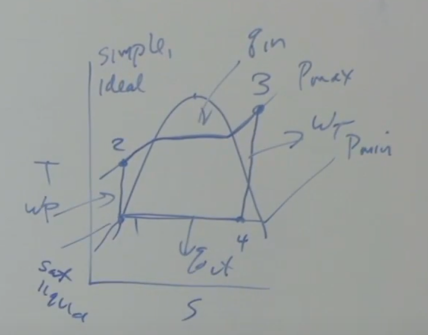 simple,
ideal
qin
3
Pmax
2
WT
Pmin
T
WP
1
4
qout
sat
liquid
S